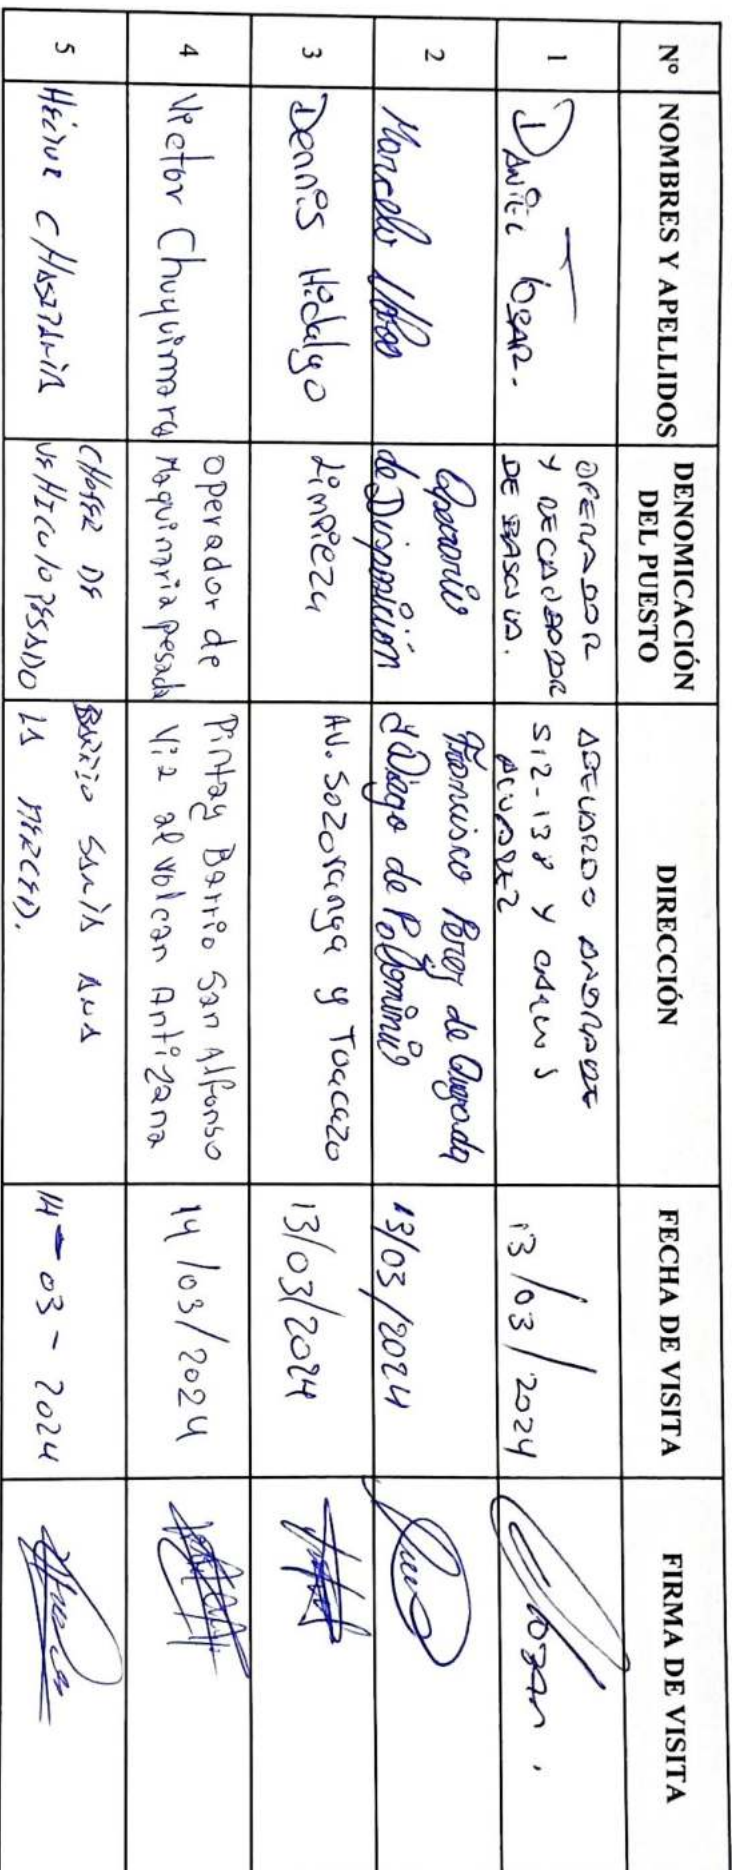 Nº NOMBRES Y APELLIDOS DENOMICACIÓN DEL PUESTO DIRECCIÓN FECHA DE VISITA FIRMA DE VISITA
1 DANIEL TOBAR.
OPERADOR
Y RECAUDADOR
DE BASCULA.
ABELARDO ANDRADE
S12-138 Y CARLOS
ALVAREZ
13/03/2024
2 Marcelo
Operario
de Disposición
Francisco Perez de Quezada
y Diego de Palomino
13/03/2024
3 Dennis Hidalgo
Limpieza
AV. Sozoranga y Toacazo
13/03/2024
4 Victor Chuquimarca
Operador de
Maquinaria pesada
Pintag Barrio San Alfonso
Via al volcan Antizana
14/03/2024
5 HECTOR
CHOFER DE
VEHICULO PESADO
BARRIO SANTA ANA
LA MERCED.
14-03-2024